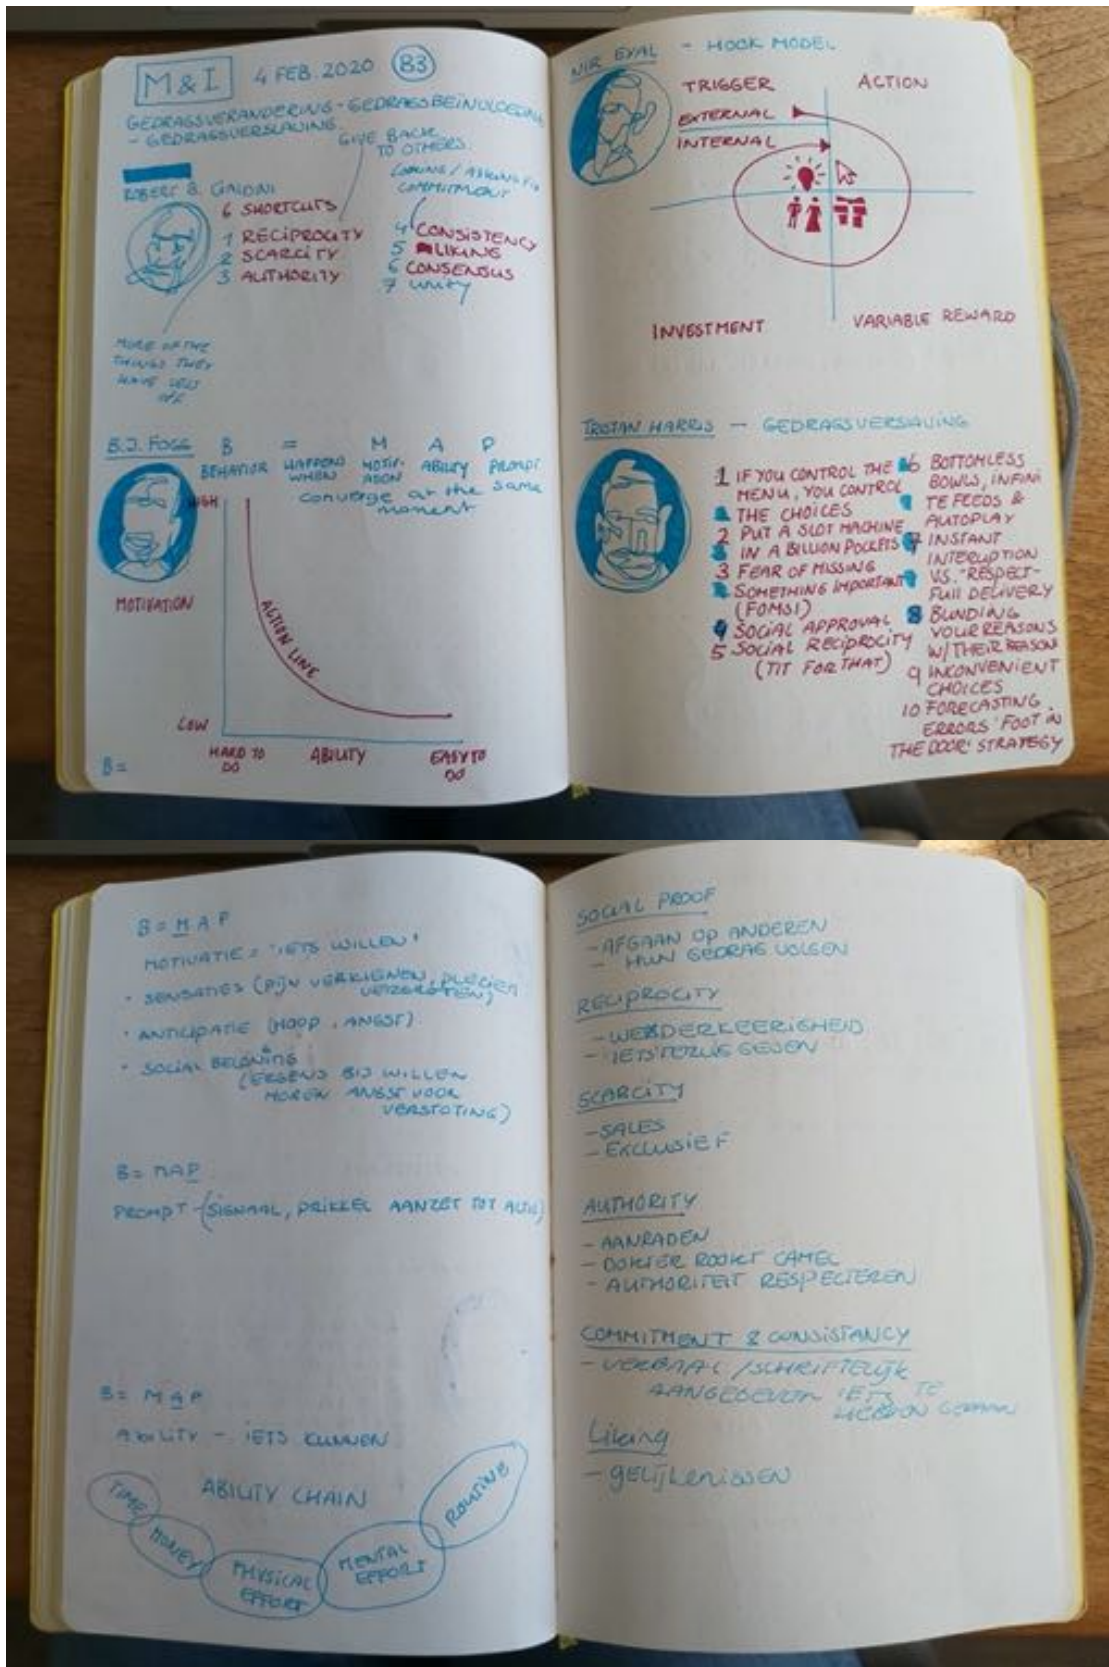 M & I 4 FEB. 2020 B3
GEDRAGSVERANDERING - GEDRAGSBEÏNVLOEDING
- GEDRAGSVERSLAVING
GIVE BACK
TO OTHERS.
LOOKING / ASKING FOR
COMMITMENT
ROBERT B. CIALDINI
6 SHORTCUTS
1 RECIPROCITY
2 SCARCITY
3 AUTHORITY
4 CONSISTENCY
5 LIKING
6 CONSENSUS
7 UNITY
MORE OF THE
THINGS THEY
HAVE LESS
OFF
B.J. FOGG B = M A P
BEHAVIOR HAPPENS WHEN MOTIVATION ABILITY PROMPT
converge at the same
moment
HIGH
MOTIVATION
ACTION LINE
LOW
HARD TO
DO
ABILITY
EASY TO
DO
B =
NIR EYAL - HOOK MODEL
TRIGGER
ACTION
EXTERNAL
INTERNAL
INVESTMENT
VARIABLE REWARD
TRISTAN HARRIS - GEDRAGSVERSLAVING
1 IF YOU CONTROL THE
MENU, YOU CONTROL
THE CHOICES
2 PUT A SLOT MACHINE
IN A BILLION POCKETS
3 FEAR OF MISSING
SOMETHING IMPORTANT
(FOMSI)
4 SOCIAL APPROVAL
5 SOCIAL RECIPROCITY
(TIT FOR THAT)
6 BOTTOMLESS
BOWLS, INFINI
TE FEEDS &
AUTOPLAY
7 INSTANT
INTERUPTION
VS. "RESPECT-
FULL DELIVERY
8 BUNDING
YOUR REASONS
W/ THEIR REASON
9 INCONVENIENT
CHOICES
10 FORECASTING
ERRORS 'FOOT IN
THE DOOR' STRATEGY
B = M A P
MOTIVATIE = 'IETS WILLEN'
• SENSATIES (PIJN VERKIGNEN, PLEZIER
VERGROTEN)
• ANTICIPATIE (HOOP, ANGST)
• SOCIAL BELONING
(ERGENS BIJ WILLEN
HOREN ANGST VOOR
VERSTOTING)
B = MAP
PROMPT - (SIGNAAL, PRIKKEL AANZET TOT ACTIE)
B = MAP
ABILITY - IETS KUNNEN
ABILITY CHAIN
TIME
MONEY
PHYSICAL
EFFORT
MENTAL
EFFORT
ROUTINE
SOCIAL PROOF
- AFGAAN OP ANDEREN
- HUN GEDRAG VOLGEN
RECIPROCITY
- WEDERKEERIGHEID
- IETS TERUG GEVEN
SCARCITY
- SALES
- EXCLUSIEF
AUTHORITY
- AANRADEN
- DOKTER ROOKT CAMEL
- AUTHORITEIT RESPECTEREN
COMMITMENT & CONSISTANCY
- VERBAAL / SCHRIFTELIJK
AANGEGEVEN IETS TE
HEBBEN GEDAAN
Liking
- GELIJKENISSEN